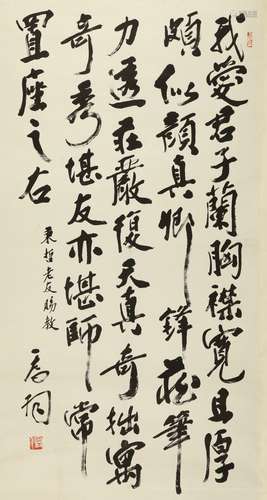 我愛君子蘭胸襟寬且厚
頗似顏真卿鋒藏筆
力透庄嚴復天真奇拙寓
奇秀堪友亦堪師常
置座之右
秉哲老友賜教